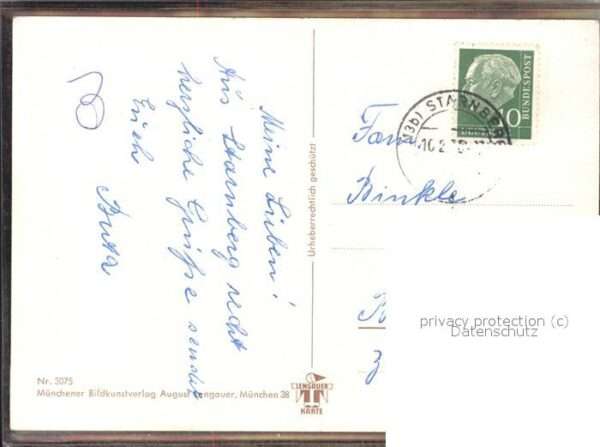 Meine Lieben!
Aus Starnberg recht
herzliche Grüße sendet
Euch
Urheberrechtlich geschützt
Nr. 3075
Münchener Bildkunstverlag August Lengauer, München 38
LENGAUER
KARTE
Fam.
Binkle
(13b) STARNBERG
10.2.
BUNDESPOST
privacy protection (c)
Datenschutz